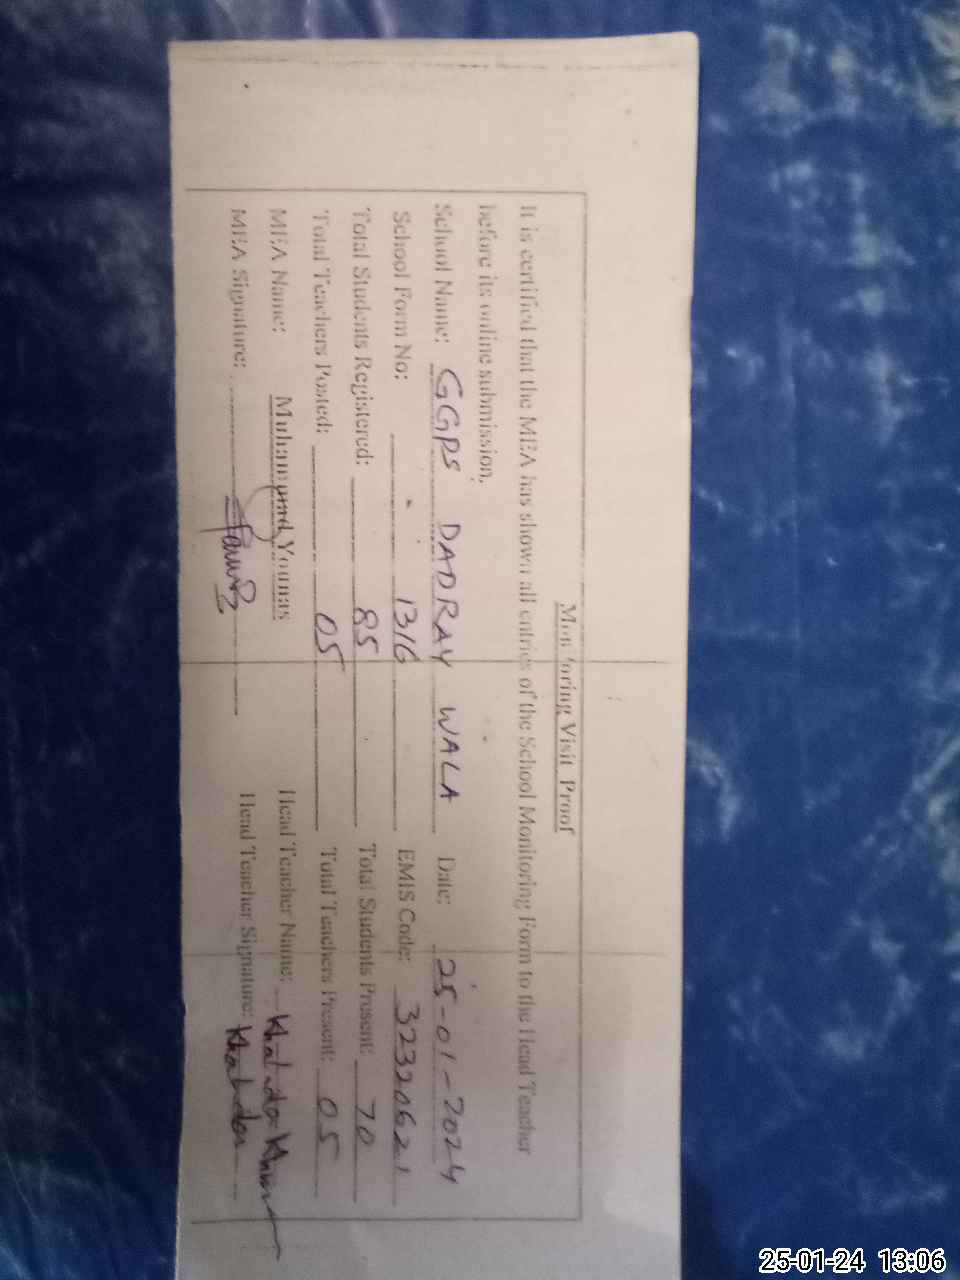 Monitoring Visit Proof
It is certified that the MEA has shown all entries of the School Monitoring Form to the Head Teacher
before its online submission.
School Name: GGPS DADRAY WALA Date: 25-01-2024
School Form No: 1316 EMIS Code: 32320621
Total Students Registered: 85 Total Students Present: 70
Total Teachers Posted: 05 Total Teachers Present: 05
MEA Name: Muhammad Younas Head Teacher Name: Khalida
MEA Signature: Head Teacher Signature: Khalida
25-01-24 13:06